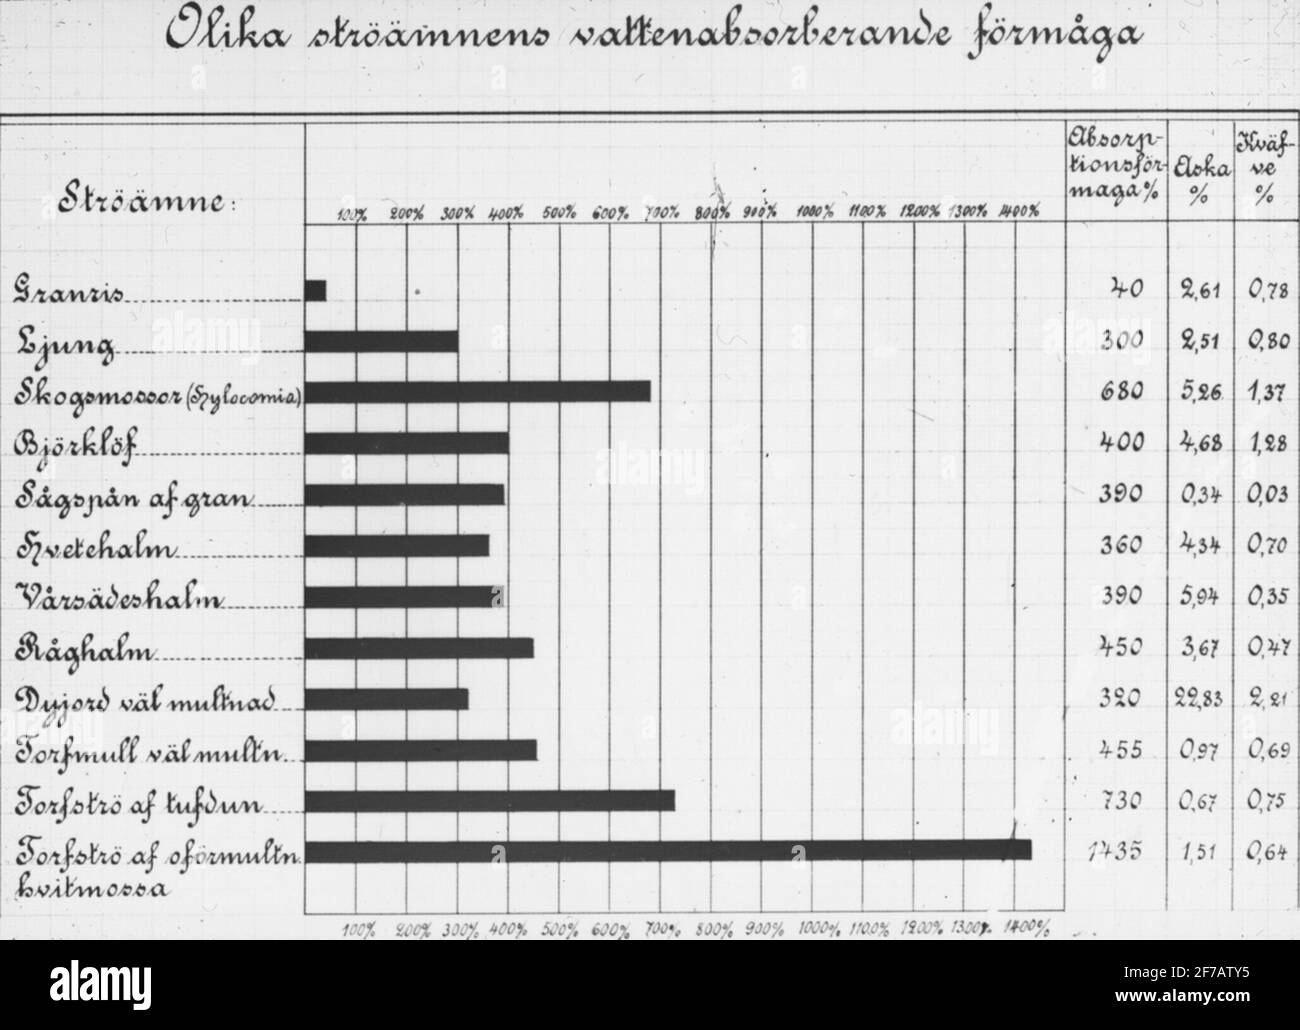 Olika ströämnens vattenabsorberande förmåga
Ströämne:
100% 200% 300% 400% 500% 600% 700% 800% 900% 1000% 1100% 1200% 1300% 1400%
Absorp-
tionsför-
maga %
Aska
%
Kväf-
ve
%
Granris 40 2,61 0,78
Ljung 300 2,51 0,80
Skogsmossor (Hylocomia) 680 5,26 1,37
Björklöf 400 4,68 1,28
Sågspån af gran 390 0,34 0,03
Hvetehalm 360 4,34 0,70
Vårsädeshalm 390 5,94 0,35
Råghalm 450 3,67 0,47
Dyjord väl multnad 320 22,83 2,21
Torfmull väl multn. 455 0,97 0,69
Torfströ af tufdun 730 0,67 0,75
Torfströ af oförmultn. 1435 1,51 0,64
hvitmossa
100% 200% 300% 400% 500% 600% 700% 800% 900% 1000% 1100% 1200% 1300% 1400%
alamy
Image ID: 2F7ABTY5
www.alamy.com